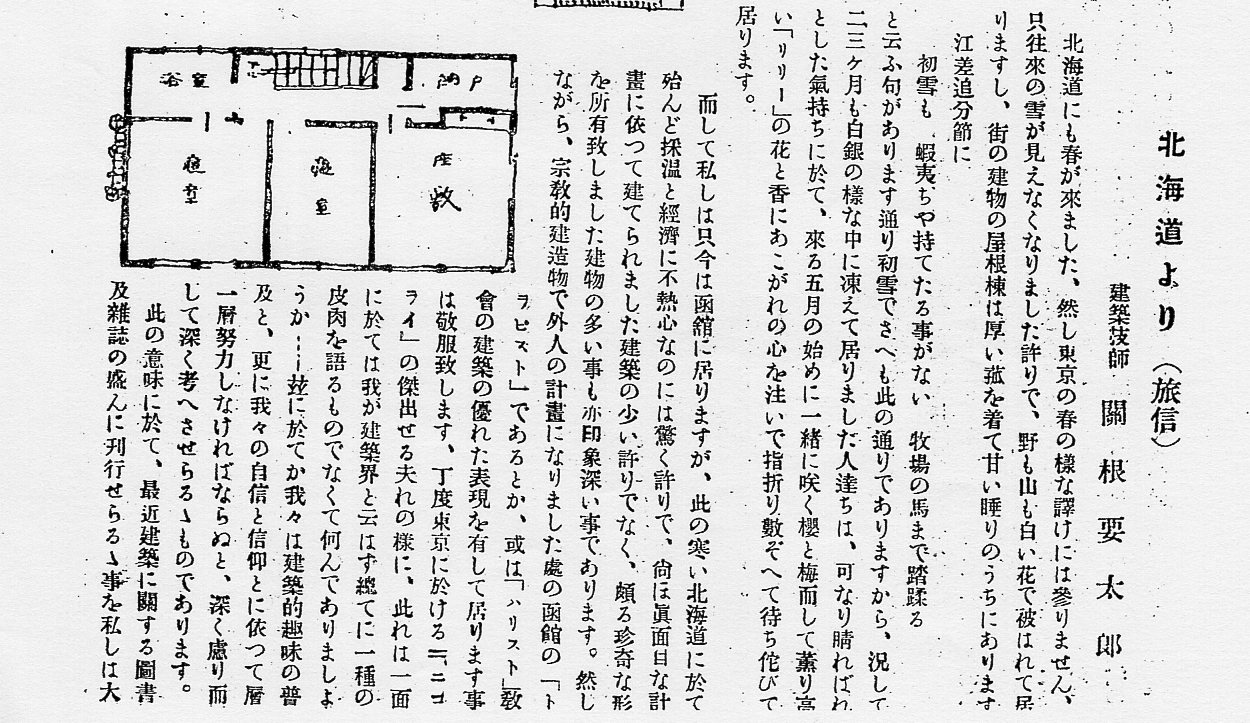 北海道より（旅信）
建築技師　關根要太郎
北海道にも春が來ました、然し東京の春の樣な譯けには參りません、
只往來の雪が見えなくなりました許りで、野も山も白い花で被はれて居
りますし、街の建物の屋根棟は厚い菰を着て甘い睡りのうちにあります
江差追分節に
初雪も　蝦夷ちや持てたる事がない　牧場の馬まで踏蹂る
と云ふ句があります通り初雪でさへも此の通りでありますから、況して
二三ケ月も白銀の樣な中に凍えて居りました人達ちは、可なり晴ればれ
とした氣持ちに於て、來る五月の始めに一緒に咲く櫻と梅而して薫り高
い「リリー」の花と香にあこがれの心を注いで指折り數ぞへて待ち佗びて
居ります。
而して私しは只今は函館に居りますが、此の寒い北海道に於て
殆んど採温と經濟に不熱心なのには驚く許りで、尙ほ眞面目な計
畫に依つて建てられました建築の少い許りでなく、頗る珍奇な形
を所有致しました建物の多い事も亦印象深い事であります。然し
ながら、宗敎的建造物で外人の計畫になりました處の函館の「ト
ラピスト」であるとか、或は「ハリスト」敎
會の建築の優れた表現を有して居ります事
は敬服致します、丁度東京に於ける「ニコ
ライ」の傑出せる夫れの樣に、此れは一面
に於ては我が建築界と云はず總てに一種の
皮肉を語るものでなくて何んでありましよ
うか――玆に於てか我々は建築的趣味の普
及と、更に我々の自信と信仰とに依つて層
一層努力しなければならぬと、深く慮り而
して深く考へさせらるゝものであります。
此の意味に於て、最近建築に關する圖書
及雜誌の盛んに刊行せらるゝ事を私しは大
浴室
納戸
寝室
座敷